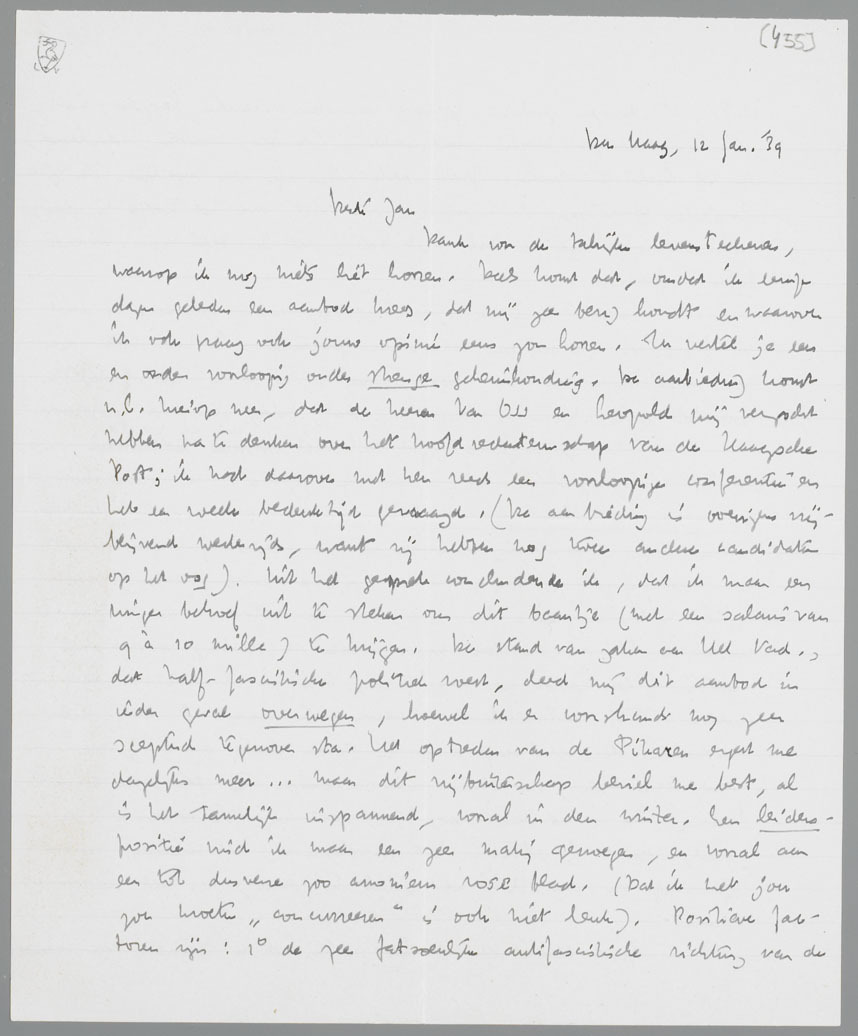 [455]
Den Haag, 12 Jan. '39
Beste Jan
Dank voor de talrijke levensteekenen,
waarop ik nog niets liet hooren. Deels komt dat, omdat ik eenige
dagen geleden een aanbod kreeg, dat mij zeer bezig houdt en waarover
ik ook graag ook jouw opinie eens zou hooren. Ik vertel je een
en ander voorloopig onder strenge geheimhouding. De aanbieding komt
n.l. hierop neer, dat de heeren Van Oss en Leopold mij verzocht
hebben na te denken over het hoofdredacteurschap van de Haagsche
Post; ik had daarover met hen reeds een voorloopige conferentie en
heb een week bedenktijd gevraagd. (De aanbieding is overigens vrij-
blijvend wederzijds, want zij hebben nog twee andere candidaten
op het oog). Uit het gesprek concludeerde ik, dat ik maar een
vinger behoef uit te steken om dit baantje (met een salaris van
9 à 10 mille) te krijgen. De stand van zaken aan Het Vad.,
dat half-fascistische politiek voert, deed mij dit aanbod in
ieder geval overwegen, hoewel ik er voorshands nog zeer
sceptisch tegenover sta. Het optreden van de Pikaren ergert me
dagelijks meer... maar dit vrijbuiterschap beviel me best, al
is het tamelijk inspannend, vooral in den winter. Een leiders-
positie vind ik maar een zeer matig genoegen, en vooral aan
een tot dusverre zoo anoniem rose blad. (Dat ik met jou
zou moeten „concurreeren" is ook niet leuk). Positieve fac-
toren zijn: 1° de zeer fatsoenlijke antifascistische richting van de